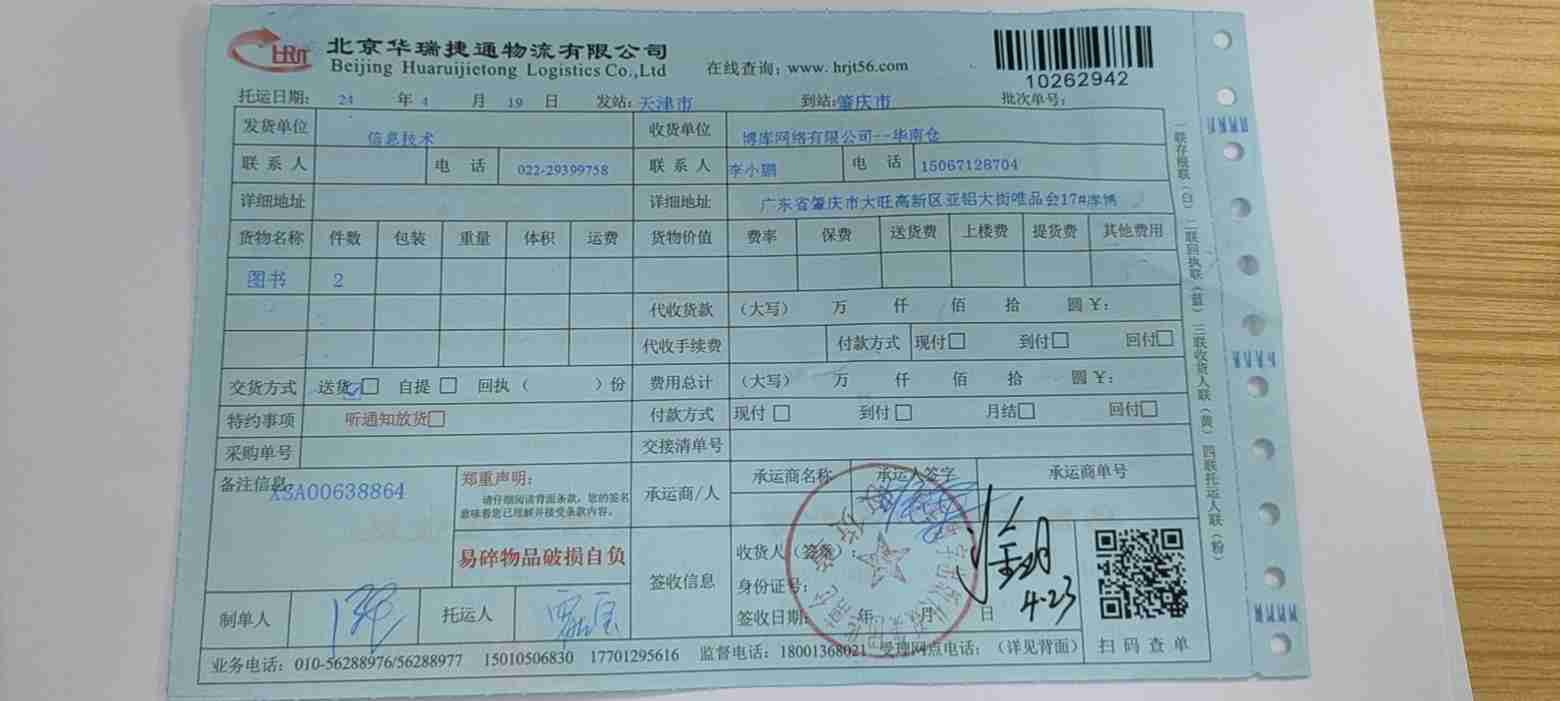 HRJT 北京华瑞捷通物流有限公司
Beijing Huaruijietong Logistics Co.,Ltd 在线查询：www. hrjt56.com
10262942
托运日期： 24 年 4 月 19 日 发站：天津市 到站：肇庆市 批次单号：
发货单位 信息技术 收货单位 博库网络有限公司--华南仓
联系人 电话 022-29399758 联系人 李小鹏 电话 15067128704
详细地址 详细地址 广东省肇庆市大旺高新区亚铝大街唯品会17#库博
货物名称 件数 包装 重量 体积 运费 货物价值 费率 保费 送货费 上楼费 提货费 其他费用
图书 2
代收货款 （大写） 万 仟 佰 拾 圆 ¥：
代收手续费 付款方式 现付□ 到付□ 回付□
交货方式 送货□ 自提□ 回执（ ）份 费用总计 （大写） 万 仟 佰 拾 圆 ¥：
特约事项 听通知放货□ 付款方式 现付□ 到付□ 月结□ 回付□
采购单号 交接清单号
备注信息 XSA00638864
郑重声明：
请仔细阅读背面条款，您的签名
意味着您已理解并接受条款内容。
易碎物品破损自负
承运商/人 承运商名称 承运人签字 承运商单号
签收信息 收货人（签章）：
身份证号：
签收日期： 年 月 日
4-23
制单人 托运人
扫码查单
业务电话：010-56288976/56288977 15010506830 17701295616 监督电话：18001368021 受理网点电话：（详见背面）
一联存根联（白） 二联回执联（蓝） 三联收货人联（黄） 四联托运人联（粉）